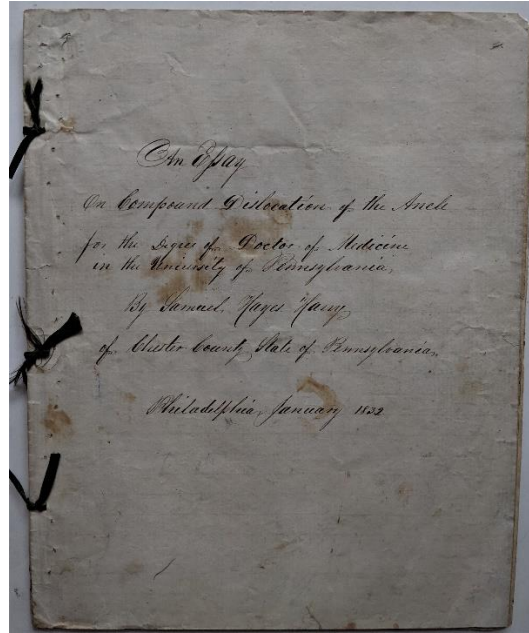 An Essay
On Compound Dislocation of the Ancle
for the Degree of Doctor of Medicine
in the University of Pennsylvania,
By Samuel Hayes Harry
of Chester County, State of Pennsylvania,
Philadelphia, January 1832